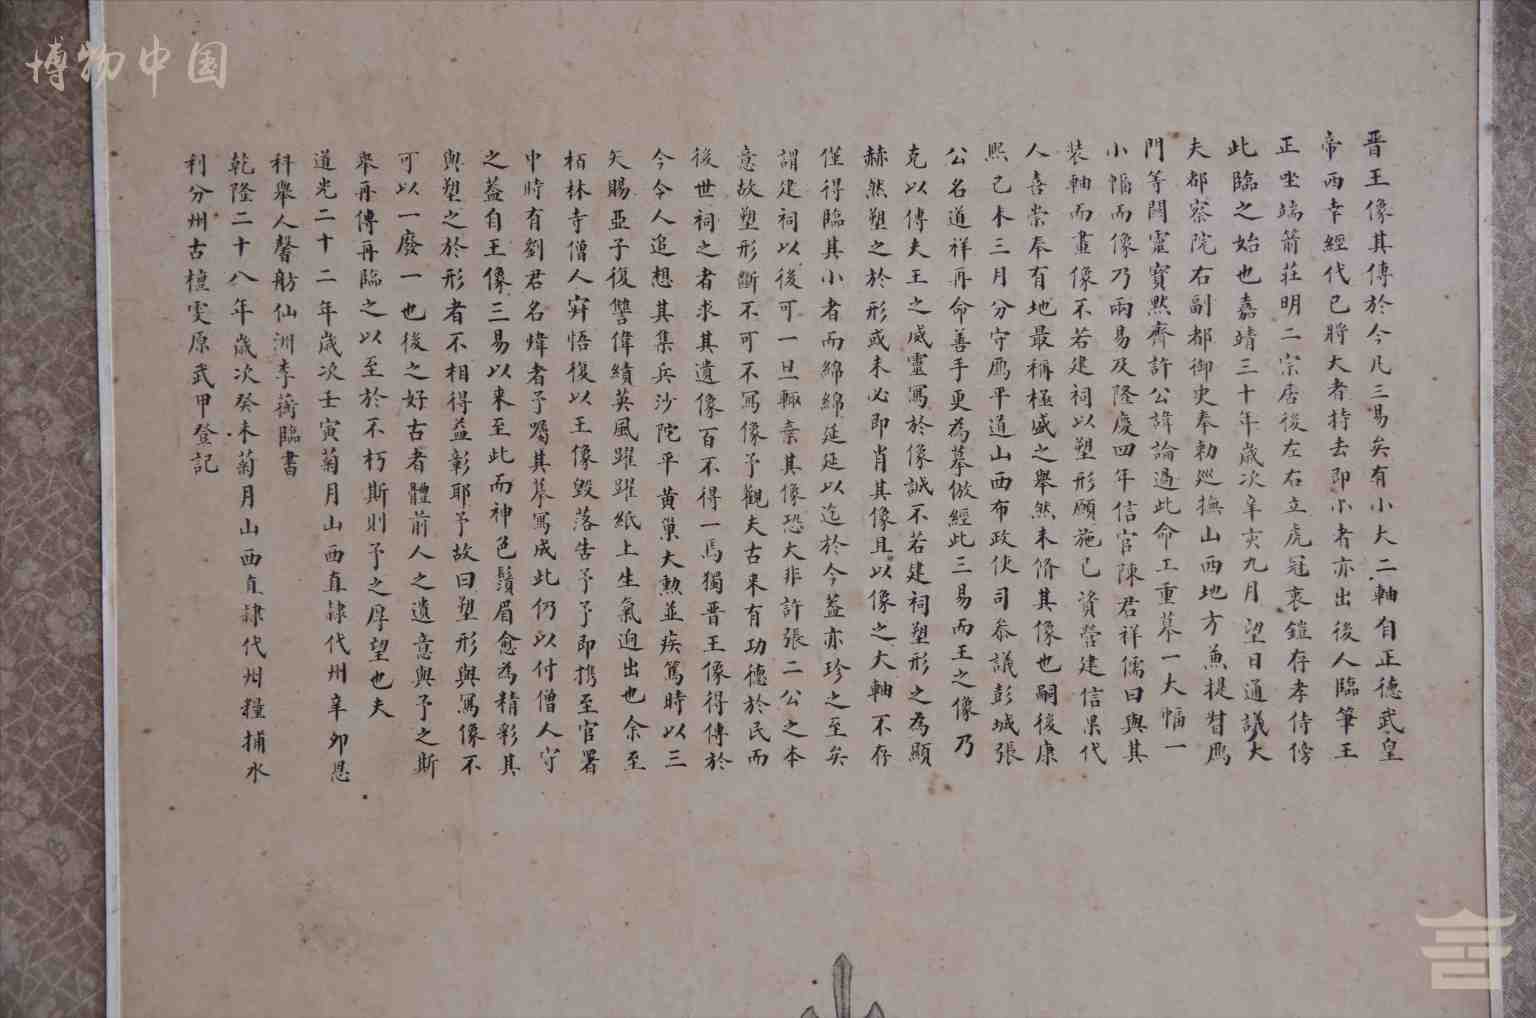 博物中国
晋王像其傳於今凡三易矣有小大二軸自正德武皇
帝西幸經代已將大者持去即小者亦出後人臨筆王
正坐端箭莊明二宗居後左右立虎冠裹鎧存孝侍傍
此臨之始也嘉靖三十年歲次辛亥九月望日通議大
夫都察院右副都御史奉勅巡撫山西地方兼提督鴈
門等關靈寶默齋許公諱論過此命工重摹一大幅一
小幅而像乃兩易及隆慶四年信官陳君祥儒曰與其
裝軸而畫像不若建祠以塑形願施己資營建信果代
人喜崇奉有地最稱極盛之舉然未脩其像也嗣後康
熙己未三月分守鴈平道山西布政使司叅議彭城張
公名道祥再命善手更為摹倣經此三易而王之像乃
克以傳夫王之威靈寫於像誠不若建祠塑形之為顯
赫然塑之於形或未必即肖其像且以像之大軸不存
僅得臨其小者而綿綿延延以迄於今蓋亦珍之至矣
謂建祠以後可一旦輒棄其像恐大非許張二公之本
意故塑形斷不可不寫像予觀夫古来有功德於民而
後世祠之者求其遺像百不得一焉獨晋王像得傳於
今令人追想其集兵沙陀平黄巢大勲並疾篤時以三
矢賜亞子復讐偉績英風躍躍紙上生氣迫出也余至
栢林寺僧人穽悟復以王像毀落告予予即携至官署
中時有劉君名煒者予囑其摹寫成此仍以付僧人守
之蓋自王像三易以来至此而神色鬚眉愈為精彩其
與塑之於形者不相得益彰耶予故曰塑形與寫像不
可以一廢一也後之好古者體前人之遺意與予之斯
舉再傳再臨之以至於不朽斯則予之厚望也夫
道光二十二年歲次壬寅菊月山西直隷代州辛卯恩
科舉人馨舫仙洲李蘅臨書
乾隆二十八年歲次癸未菊月山西直隷代州糧捕水
利分州古檀雯原武甲登記